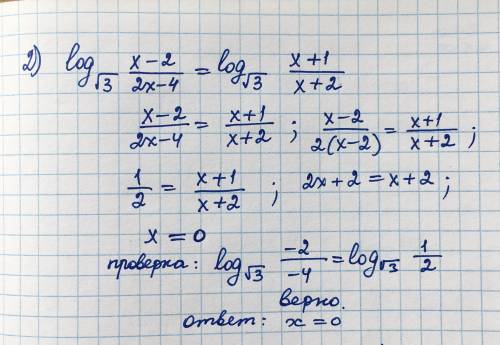 2) log_√3 (x-2)/(2x-4) = log_√3 (x+1)/(x+2)
(x-2)/(2x-4) = (x+1)/(x+2) ; (x-2)/(2(x-2)) = (x+1)/(x+2) ;
1/2 = (x+1)/(x+2) ; 2x+2 = x+2 ;
x = 0
проверка: log_√3 (-2)/(-4) = log_√3 1/2
верно.
ответ: x = 0